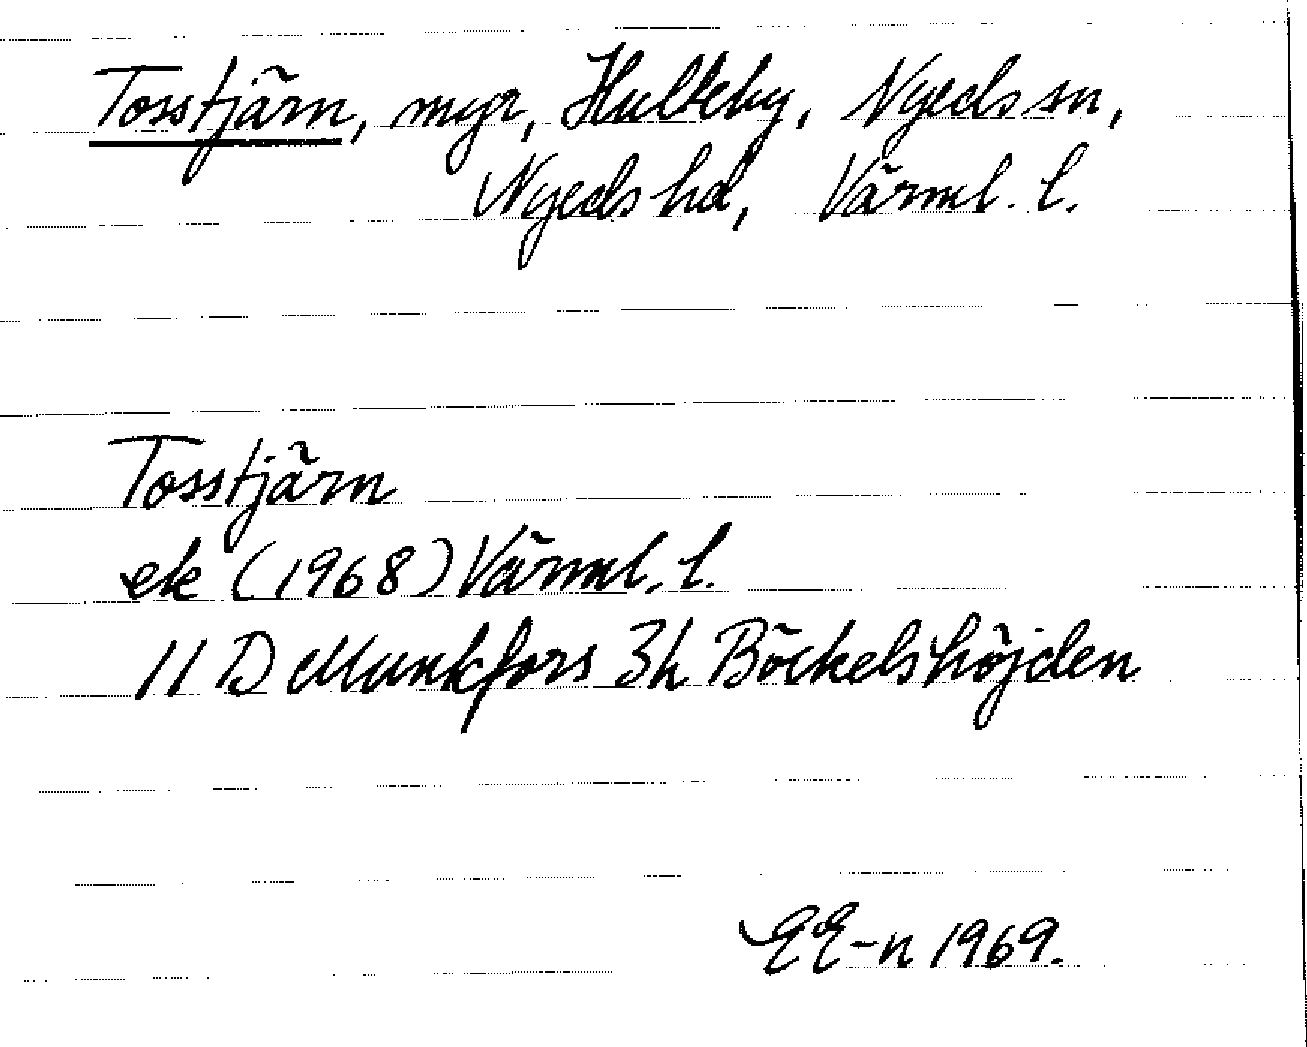 Tosstjärn, myr, Hulteby, Nyeds sn,
Nyeds hd, Värml. l.
Tosstjärn
ek (1968) Värml. l.
11 D Munkfors 3h Böckelshöjden
EE-n 1969.